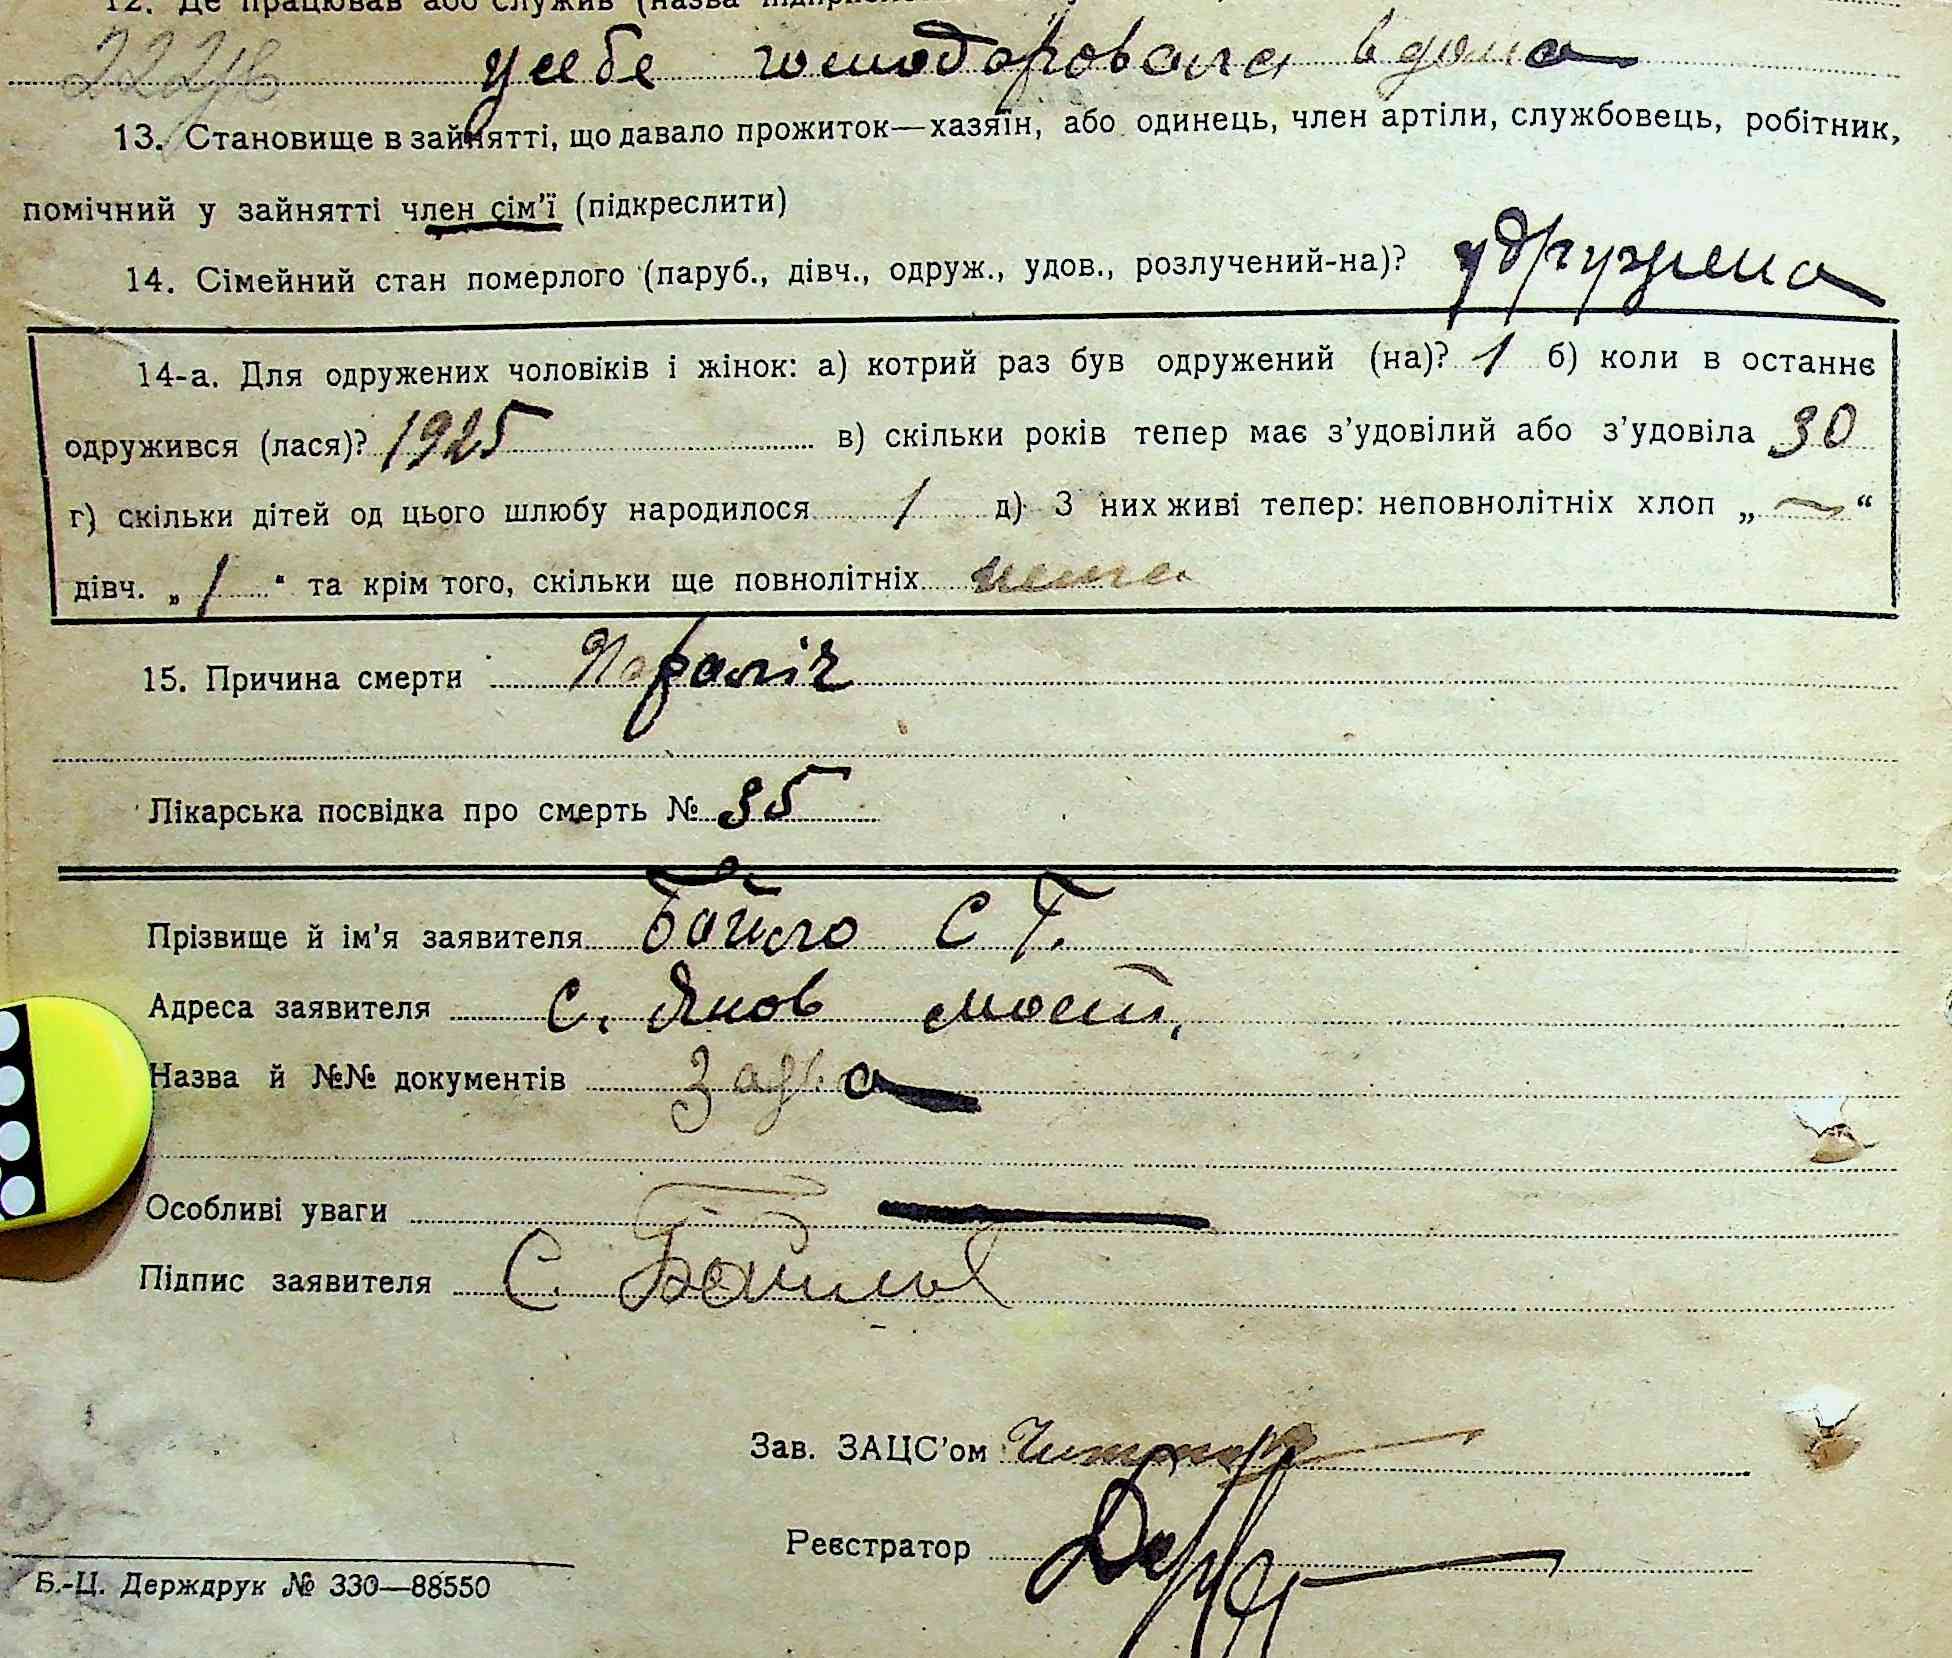 12. Де працював або служив (назва
у себе господаровала вдома
13. Становище в зайнятті, що давало прожиток—хазяїн, або одинець, член артіли, службовець, робітник,
помічний у зайнятті член сім'ї (підкреслити)
14. Сімейний стан померлого (паруб., дівч., одруж., удов., розлучений-на)? удружена
14-а. Для одружених чоловіків і жінок: а) котрий раз був одружений (на)? 1 б) коли в останнє
одружився (лася)? 1925 в) скільки років тепер має з'удовілий або з'удовіла 30
г) скільки дітей од цього шлюбу народилося 1 д) З них живі тепер: неповнолітніх хлоп „ — “
дівч. „ 1 “ та крім того, скільки ще повнолітніх нема
15. Причина смерти Параліч
Лікарська посвідка про смерть № 35
Прізвище й ім'я заявителя Байло С Т.
Адреса заявителя с. Янов мост.
Назва й №№ документів
Особливі уваги —
Підпис заявителя С. Байло
Зав. ЗАЦС'ом
Реєстратор
Б.-Ц. Держдрук № 330—88550